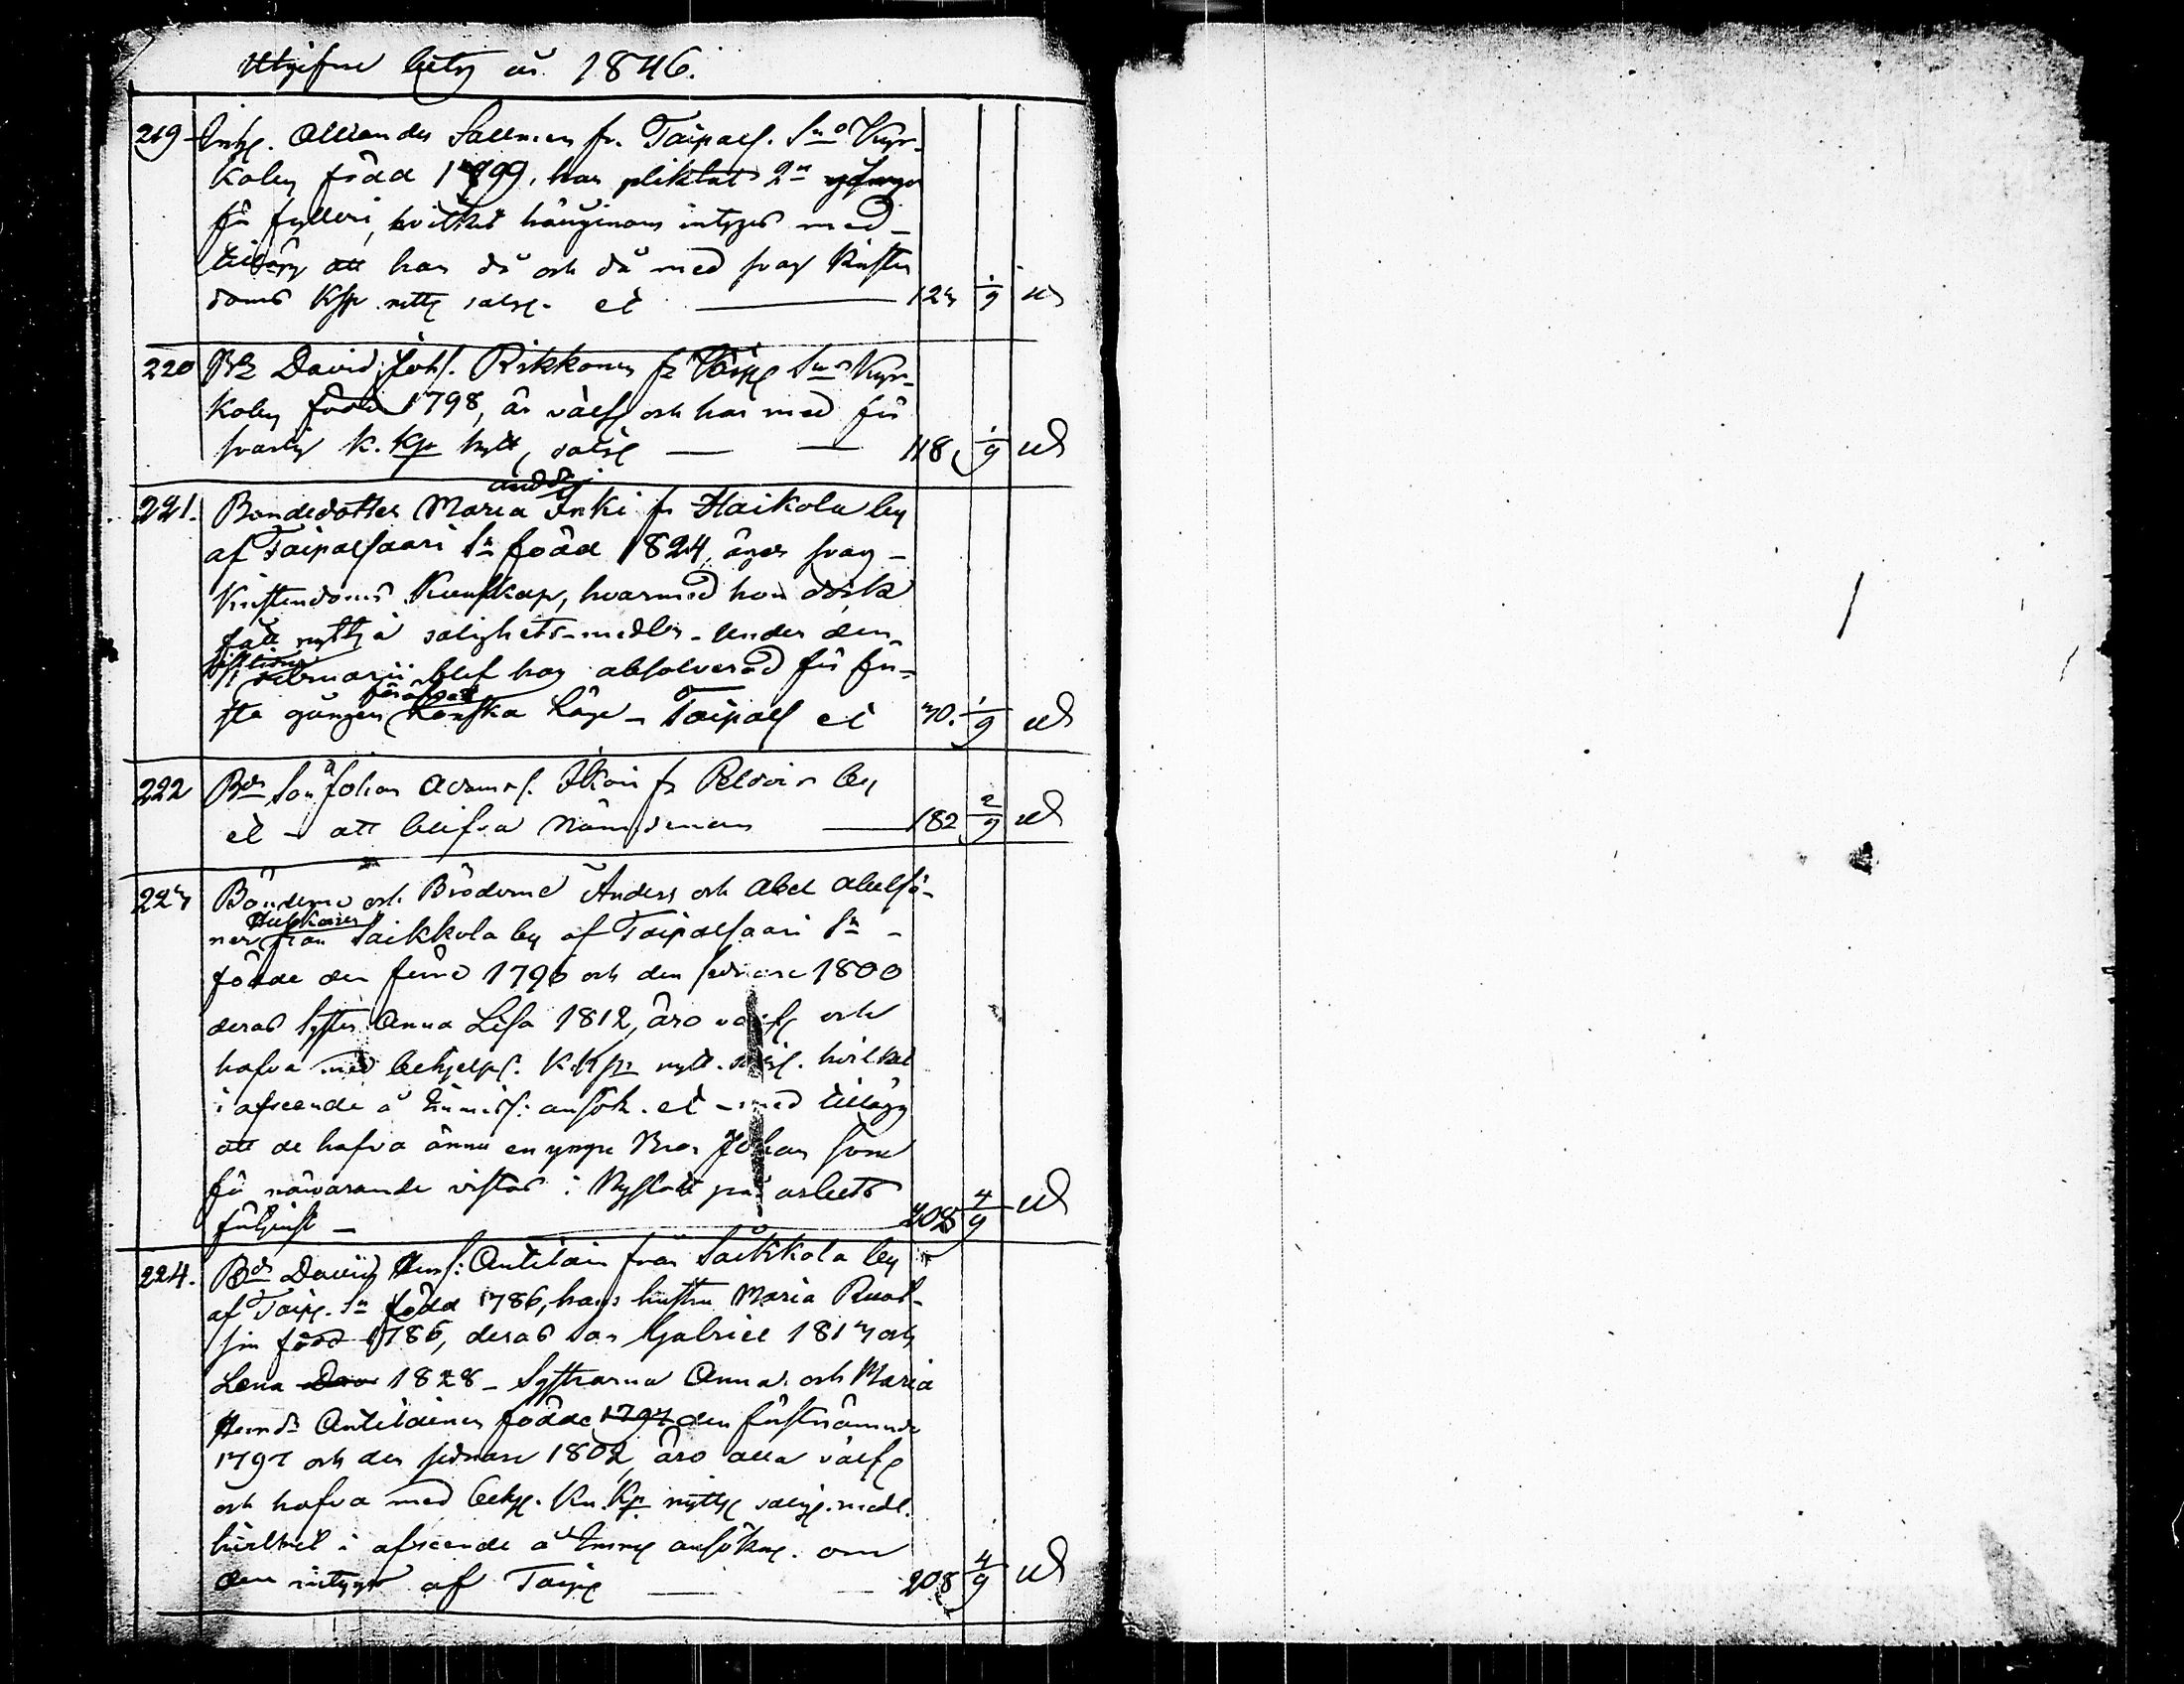 Utgifne betyg år 1846.
219 Inhs. Allexander Sallinen fr. Taipals. Sn Kyr-
koby född 1799, har pliktat 2n gånger
för fylleri, hvilket härigenom intygas med
tillägg att han då och då med svag Kristen
doms Ksp nyttj salig. et 123 1/9 ud
220 Bd David Johs. Rikkonen fr Taip Sn Kyr-
koby född 1798, är välf och har med för
svarlig K. Ksp nytt, salig 118 1/9 ud
andd:r
221. Bondedotter Maria Inki fr Haikola by
af Taipalsaari Sn född 1824, äger svag
Kristendoms Kunskap, hvarmed hon dock
fått nyttja salighets-medlen. Under den
sistlidne
februarii blef hon absolverad för för-
sta gången lönska läge - Taipals et 30. 1/9 ud
222 Bde Son Johan Adams. fr Peldois by
et - att blifva Nämndeman 182 2/9 ud
223 Bönderne och Bröderne Anders och Abel Abelsö-
ner från Saikkola by af Taipalsaari Sn
födde den förre 1796 och den sednare 1800
deras Syster Anna Lisa 1812, äro välf och
hafva med behjelpl. K.Ksp nytt. salig. hvilket
i afseende å ansök. et - med tillägg
att de hafva ännu en yngre Bror Johan som
för närvarande vistas i Nyslott på arbets
förtjenst - 208 4/9 ud
224. Bde David Hens: Antilain från Saikkola by
af Taip. Sn född 1786, hans hustru Maria Ruot-
sin född 1786, deras Son Gabriel 1813 och
Lena 1828 - Systrarna Anna och Maria
Hensdr Antilainen födde 1797 den förstnämnde
1797 och den sednare 1802, äro alla välf
och hafva med behj. Kn. Ksp. nyttj salig. medl.
hvilket i afseende å ansökn. om
den intygas af Taip 208 4/9 ud